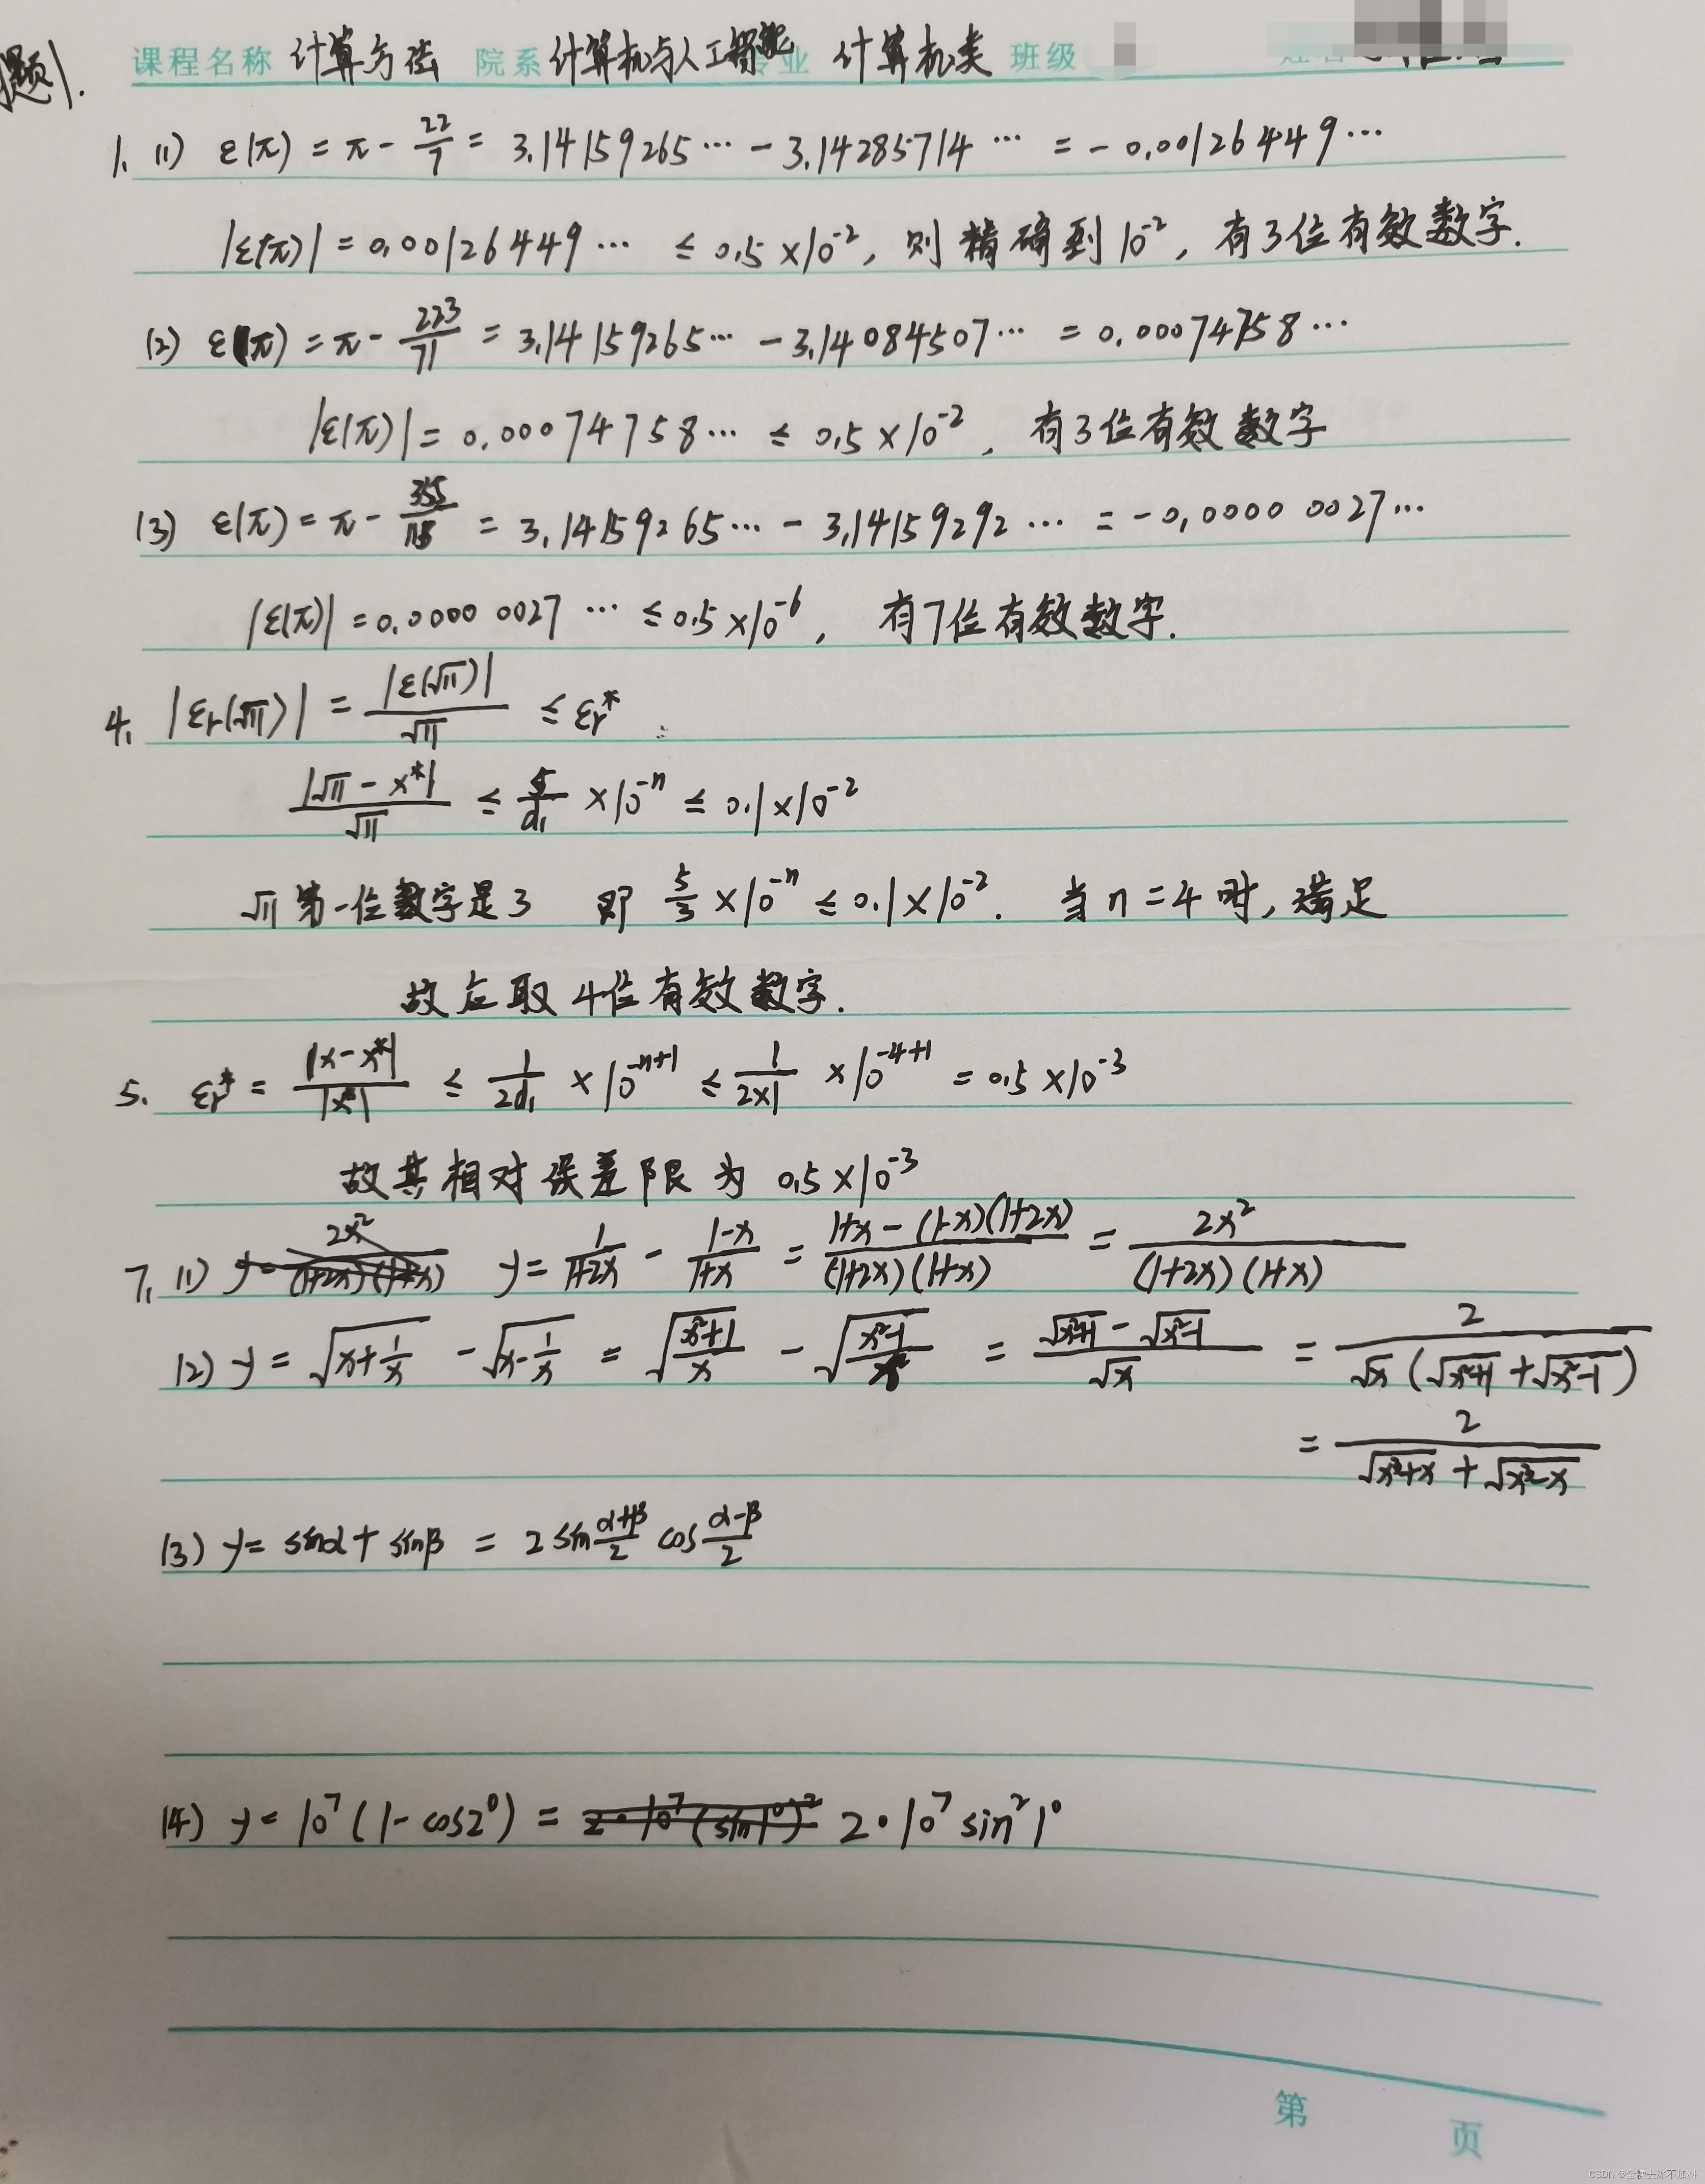 题1.
课程名称 计算方法 院系 计算机与人工智能 专业 计算机类 班级
1. (1) ε(π) = π - 22/7 = 3.14159265… - 3.14285714… = -0.00126449…
|ε(π)| = 0.00126449… ≤ 0.5×10⁻², 则精确到10⁻², 有3位有效数字.
(2) ε(π) = π - 223/71 = 3.14159265… - 3.14084507… = 0.00074758…
|ε(π)| = 0.00074758… ≤ 0.5×10⁻², 有3位有效数字
(3) ε(π) = π - 355/113 = 3.14159265… - 3.14159292… = -0.00000027…
|ε(π)| = 0.00000027… ≤ 0.5×10⁻⁶, 有7位有效数字.
4. |εr(√11)| = |ε(√11)|/√11 ≤ εr*
|√11 - x*|/√11 ≤ 5/d₁ ×10⁻ⁿ ≤ 0.1×10⁻²
√11第一位数字是3 即 5/3 ×10⁻ⁿ ≤ 0.1×10⁻². 当n=4时, 满足
故应取4位有效数字.
5. εr* = |x-x*|/|x*| ≤ 1/2d₁ ×10⁻ⁿ⁺¹ ≤ 1/2×1 ×10⁻⁴⁺¹ = 0.5×10⁻³
故其相对误差限为 0.5×10⁻³
7. (1) y = 2x²/(1+2x)(1+x) y = 1/1+2x - 1-x/1+x = 1+x-(1-x)(1+2x)/(1+2x)(1+x) = 2x²/(1+2x)(1+x)
(2) y = √(x+1/x) - √(x-1/x) = √(x²+1/x) - √(x²-1/x) = √(x²+1) - √(x²-1)/√x = 2/√x(√(x²+1)+√(x²-1))
= 2/√(x³+x)+√(x³-x)
(3) y = sinα + sinβ = 2sin α+β/2 cos α-β/2
(4) y = 10⁷(1-cos2°) = 2·10⁷(sin1°)² 2·10⁷sin²1°
第 页
CSDN @全糖去冰不加料